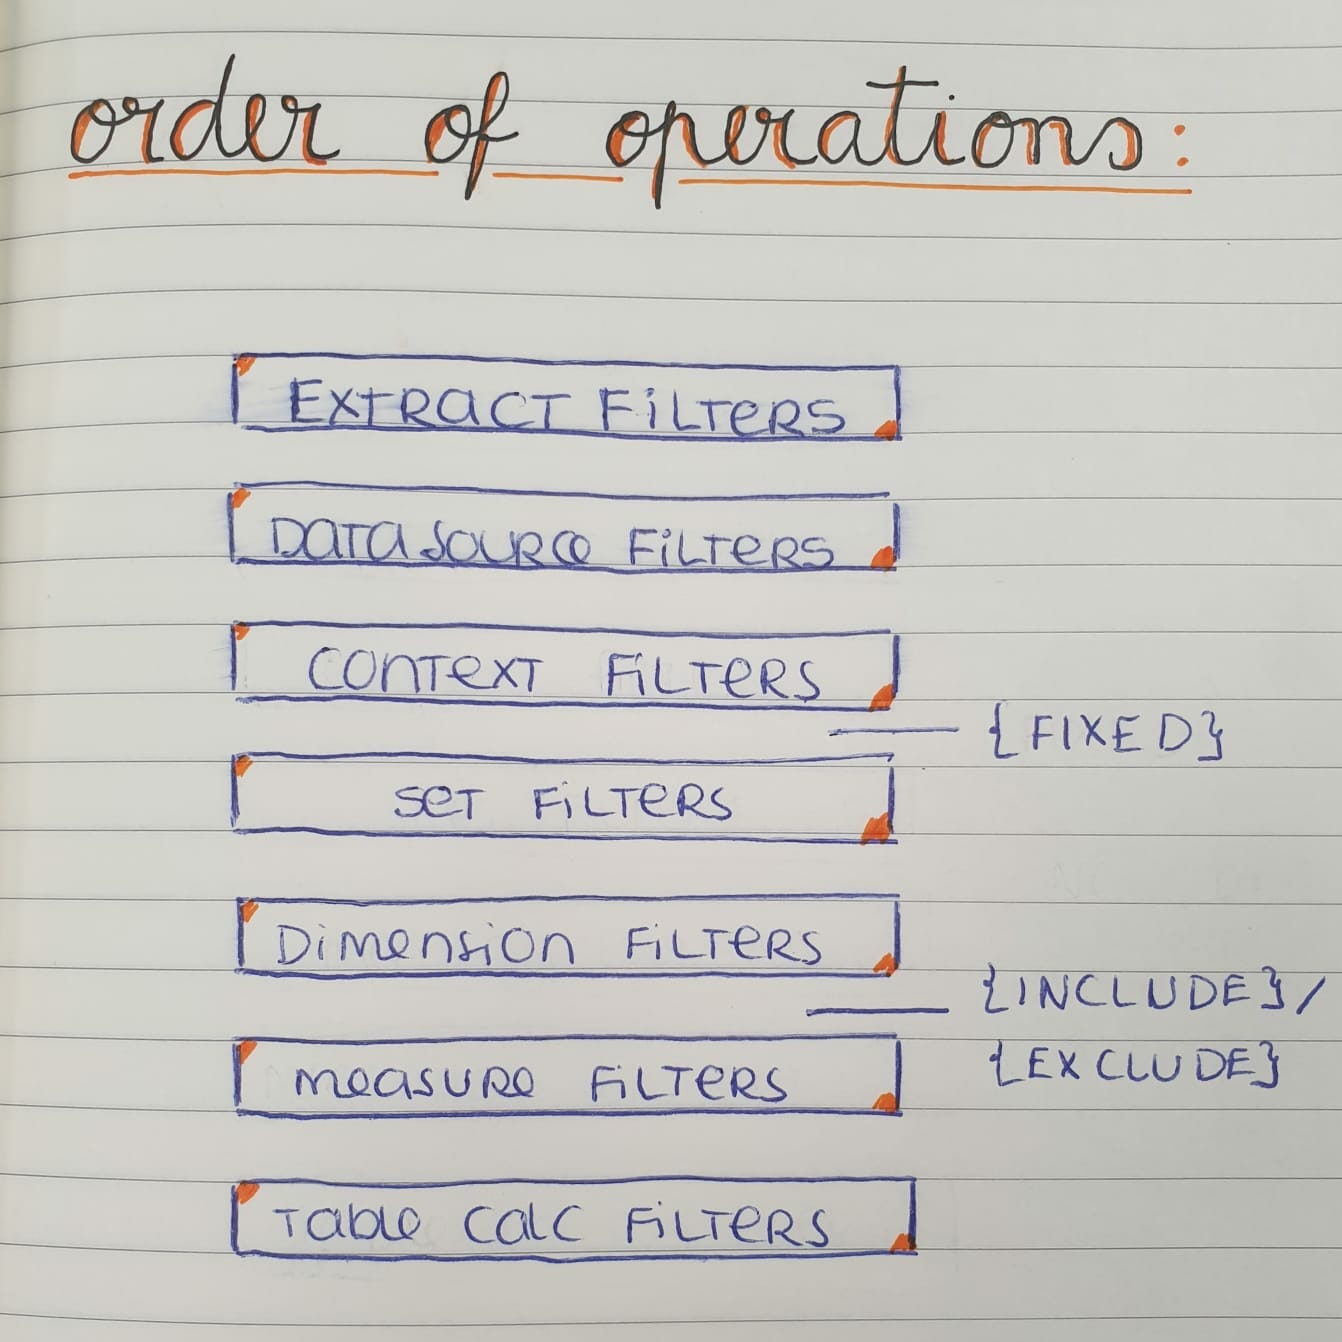 order of operations:
EXTRACT FiLTERS
DATASOURCE FiLTERS
CONTEXT FiLTERS
{FIXED}
SET FiLTERS
DiMENSiON FiLTERS
{INCLUDE}/
{EXCLUDE}
MEASURE FiLTERS
TABLE CALC FiLTERS